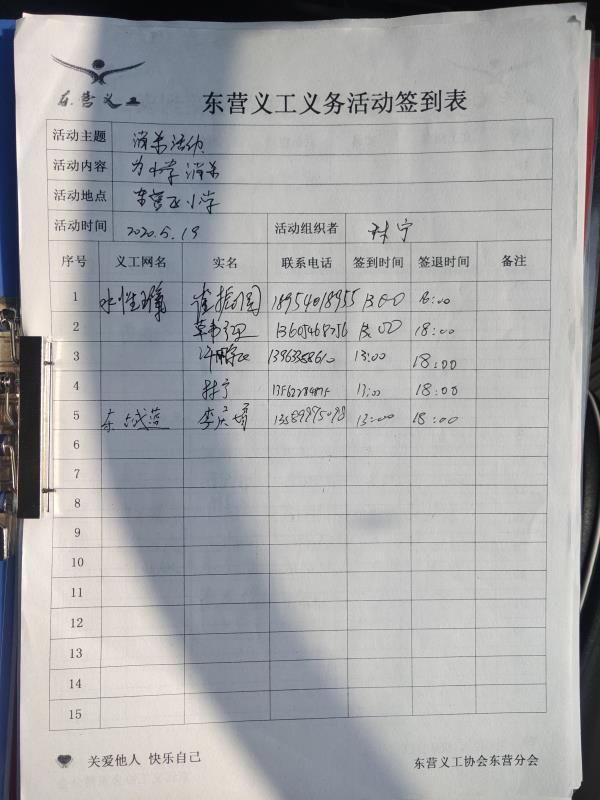 东营义工
东营义工义务活动签到表
活动主题 消杀活动
活动内容 为小学消杀
活动地点 小学
活动时间 2020.5.19 活动组织者 林宁
序号 义工网名 实名 联系电话 签到时间 签退时间 备注
1 水性 崔振国 18954018955 13:00 18:00
2 18:00
3 13:00 18:00
4 林宁 13:00 18:00
5 李庆 13:00 18:00
6
7
8
9
10
11
12
13
14
15
关爱他人 快乐自己
东营义工协会东营分会